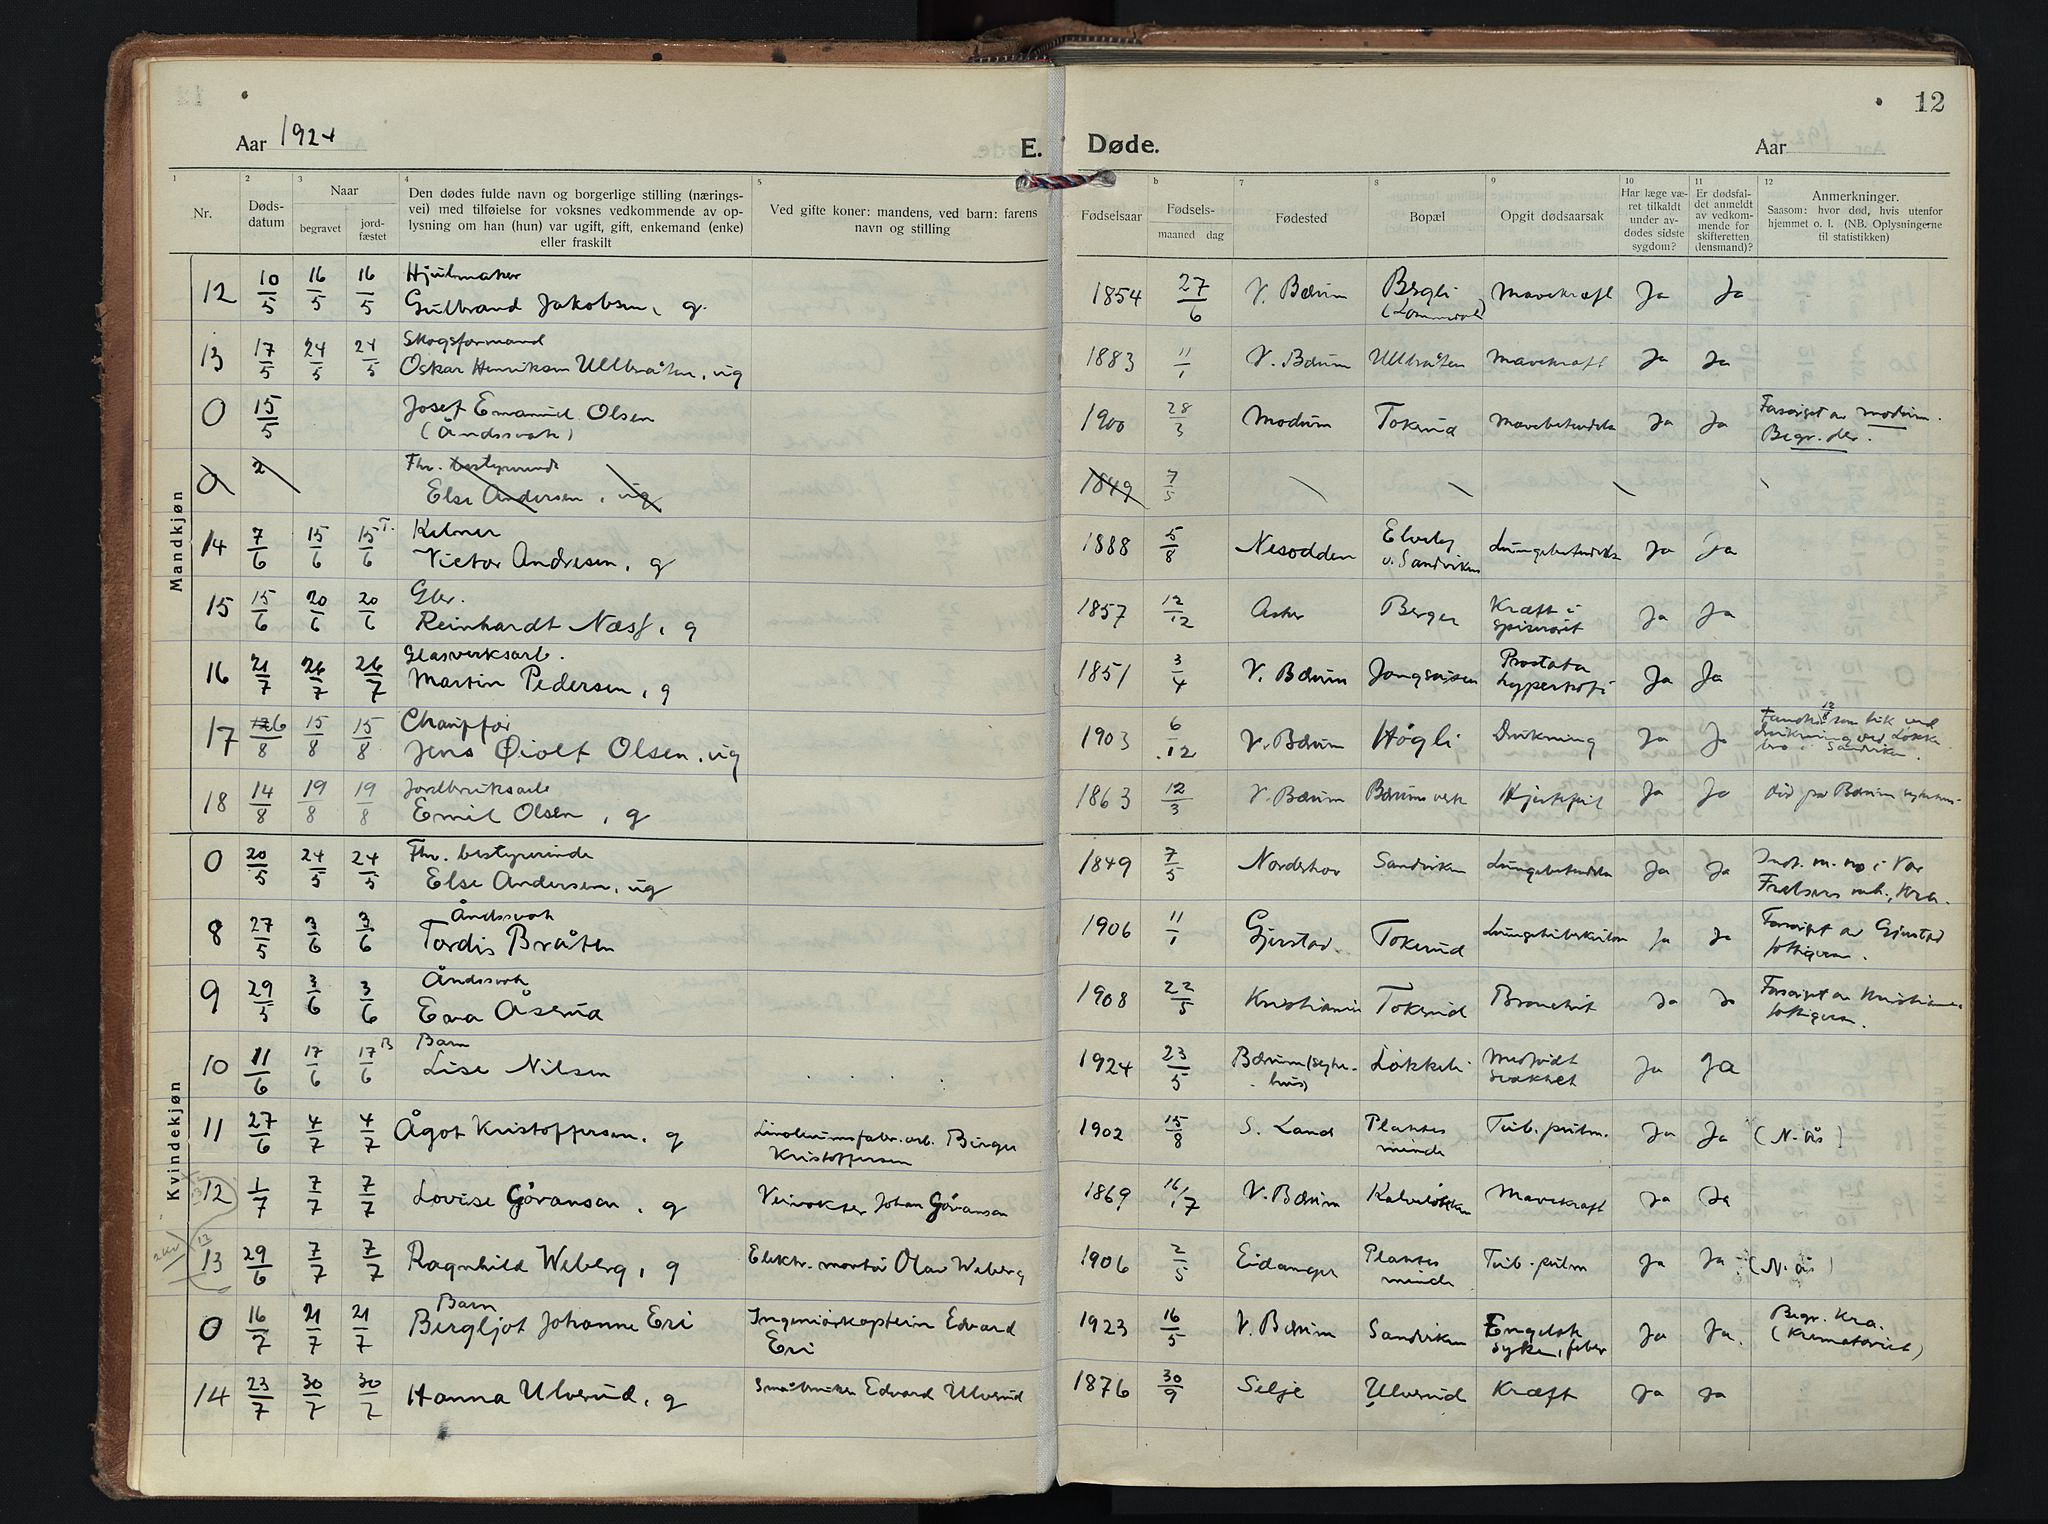 12
Aar 1924
E. Døde.
Aar
1 2 3 4 5 6 7 8 9 10 11 12
Nr.
Døds-
datum
Naar
begravet
jord-
fæstet
Den dødes fulde navn og borgerlige stilling (nærings-
vei) med tilføielse for voksnes vedkommende av op-
lysning om han (hun) var ugift, gift, enkemand (enke)
eller fraskilt
Ved gifte koner: mandens, ved barn: farens
navn og stilling
Fødselsaar
Fødsels-
maaned dag
Fødested
Bopæl
Opgit dødsaarsak
Har læge væ-
ret tilkaldt
under av-
dødes sidste
sygdom?
Er dødsfal-
det anmeldt
av vedkom-
mende for
skifteretten
(lensmand)?
Anmerkninger.
Saasom: hvor død, hvis utenfor
hjemmet o. l. (NB. Oplysningerne
til statistikken)
Mandkjøn
12 10/5 16/5 16/5 Hjulmaker
Gulbrand Jakobsen, g. 1854 27/6 V. Bærum Bergli (Lommedal) Mavekræft Ja Ja
13 17/5 24/5 24/5 Skogsformand
Oskar Henriksen Ullbråten, ug 1883 11/1 V. Bærum Ullbråten Mavekræft Ja Ja
0 15/5 Josef Emanuel Olsen
(Åndssvak) 1900 28/3 Modum Tokerud Mavebetendelse Ja Ja Forsørget av Modum.
Begr. der.
0 2 Fhv. bestyrerinde
Else Andersen, ug 1849 7/5
14 7/6 15/6 15/6 Kelner
Victor Andresen, g 1888 5/8 Nesodden Elveby
v. Sandviken Lungebetendelse Ja Ja
15 15/6 20/6 20/6 Gbr.
Reinhardt Næss, g 1857 12/12 Asker Berger Kræft i
spiserøret Ja Ja
16 21/7 26/7 26/7 Glasverksarb.
Martin Pedersen, g 1851 3/4 V. Bærum Jongsåsen Prostata
hypertrofi Ja Ja
17 6/8 15/8 15/8 Chauffør
Jens Øiolf Olsen, ug 1903 6/12 V. Bærum Høgli Drukning Ja Ja Fundet 12/8 som lik ved
drukning ved Løkke
bro i Sandviken.
18 14/8 19/8 19/8 Jordbruksarb
Emil Olsen, g 1863 12/3 V. Bærum Bærums verk Hjertefeil Ja Ja Død på Bærum sykehus
Kvindekjøn
0 20/5 24/5 24/5 Fhv. bestyrerinde
Else Andersen, ug 1849 7/5 Norderhov Sandviken Lungebetendelse Ja Ja Indf. m. no i Vor
Frelsers mh., Kra.
8 27/5 3/6 3/6 Åndssvak
Tordis Bråten 1906 11/1 Gjerstad Tokerud Lungetuberkulose Ja Ja Forsørget av Gjerstad
fattigvesen.
9 29/5 3/6 3/6 Åndssvak
Eva Åserud 1908 22/5 Kristiania Tokerud Bronchit Ja Ja Forsørget av Kristiania
fattigvesen.
10 11/6 17/6 17/6 B Barn
Lise Nilsen 1924 23/5 Bærum (syke-
hus) Løkkeli Medfødt
svakhet Ja Ja
11 27/6 4/7 4/7 Ågot Kristoffersen, g Linoleumsfabr.arb. Birger
Kristoffersen 1902 15/8 S. Land Plantes
minde Tub. pulm. Ja Ja (N. ås)
12 1/7 7/7 7/7 Lovise Göransen, g Veivokter Johan Göransen 1869 16/7 V. Bærum Kalveløkken Mavekræft Ja Ja
13 29/6 7/7 7/7 Ragnhild Weberg, g Elektr. montør Olav Weberg 1906 2/5 Eidanger Plantes
minde Tub. pulm Ja Ja (N. ås)
0 16/7 21/7 21/7 Barn
Bergljot Johanne Eri Ingeniørkaptein Edvard
Eri 1923 16/5 V. Bærum Sandviken Engelsk
syke, feber Ja Ja. Begr. Kra.
(Krematoriet)
14 23/7 30/7 30/7 Hanna Ulverud, g Småbruker Edvard Ulverud 1876 30/9 Selje Ulverud Kræft Ja Ja